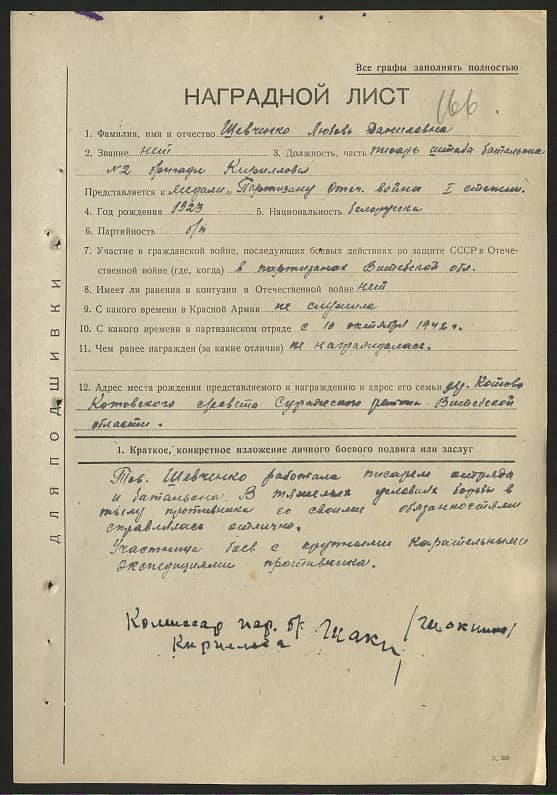 Все графы заполнять полностью
НАГРАДНОЙ ЛИСТ
166
1. Фамилия, имя и отчество Шевченко Любовь Даниловна
2. Звание нет 3. Должность, часть писарь штаба батальона
№2 бригады Кириллова
Представляется к медали „Партизану Отеч. война I степени.
4. Год рождения 1923 5. Национальность белорусска
6. Партийность б/п
7. Участие в гражданской войне, последующих боевых действиях по защите СССР в Отече-
ственной войне (где, когда) в партизанах Витебской обл.
8. Имеет ли ранения и контузии в Отечественной войне нет
9. С какого времени в Красной Армии не служила
10. С какого времени в партизанском отряде с 10 октября 1942 г.
11. Чем ранее награжден (за какие отличия) не награждалась.
12. Адрес места рождения представляемого к награждению и адрес его семьи дер. Котово
Котовского с/совета Суражского района Витебской
области.
1. Краткое, конкретное изложение личного боевого подвига или заслуг
Тов. Шевченко работала писарем отряда
и батальона. В тяжелых условиях борьбы в
тылу противника со своими обязанностями
справлялась отлично.
Участница боев с крупными карательными
экспедициями противника.
Комиссар пар. бр.
Кириллова
ДЛЯ ПОДШИВКИ